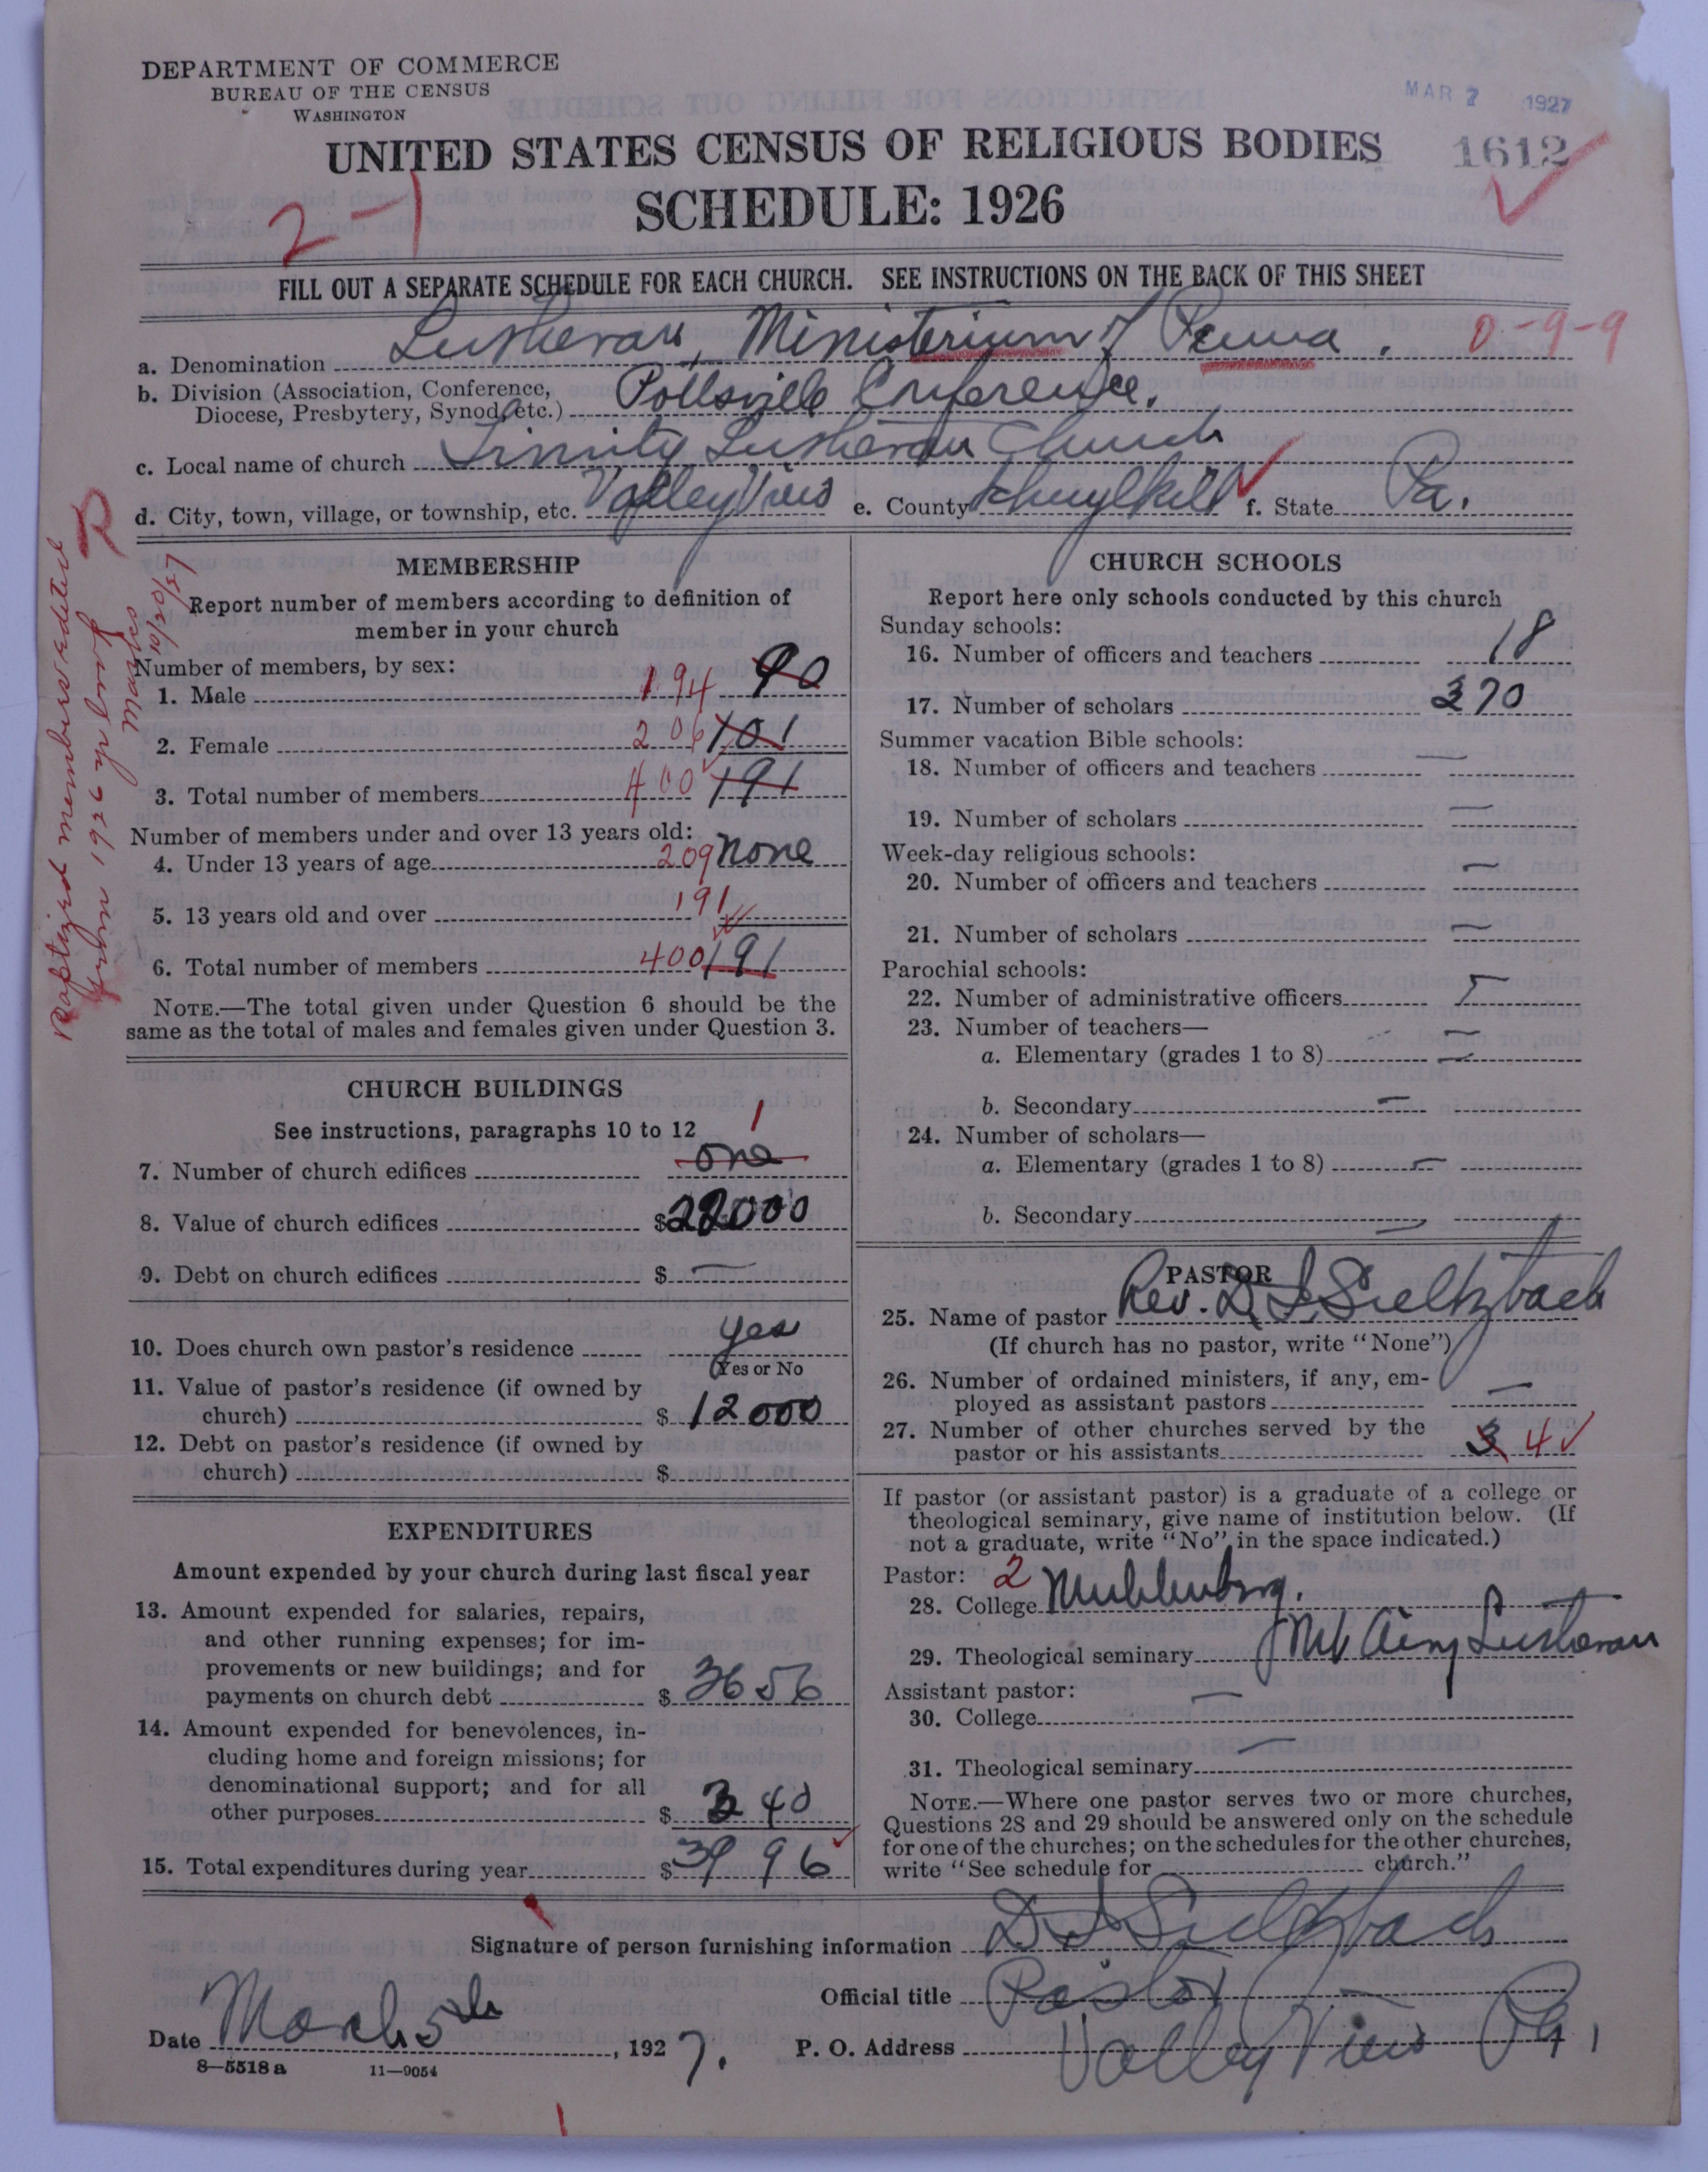 DEPARTMENT OF COMMERCE
BUREAU OF THE CENSUS
WASHINGTON
MAR 7 1927
UNITED STATES CENSUS OF RELIGIOUS BODIES
1612
SCHEDULE: 1926
2-1
FILL OUT A SEPARATE SCHEDULE FOR EACH CHURCH. SEE INSTRUCTIONS ON THE BACK OF THIS SHEET
a. Denomination Lutheran, Ministerium of Penna. 0-9-9
b. Division (Association, Conference, Diocese, Presbytery, Synod, etc.) Pottsville Conference.
c. Local name of church Trinity Lutheran Church
d. City, town, village, or township, etc. Valley View e. County Schuylkill f. State Pa.
Baptized members edited
from 1926 yr book
10/20/27
MEMBERSHIP
Report number of members according to definition of
member in your church
Number of members, by sex:
1. Male 194 90
2. Female 206 101
3. Total number of members 400 191
Number of members under and over 13 years old:
4. Under 13 years of age 209 none
5. 13 years old and over 191
6. Total number of members 400 191
NOTE.—The total given under Question 6 should be the
same as the total of males and females given under Question 3.
CHURCH BUILDINGS
See instructions, paragraphs 10 to 12
7. Number of church edifices one 1
8. Value of church edifices $ 22000
9. Debt on church edifices $ —
10. Does church own pastor's residence yes
Yes or No
11. Value of pastor's residence (if owned by
church) $ 12000
12. Debt on pastor's residence (if owned by
church) $
EXPENDITURES
Amount expended by your church during last fiscal year
13. Amount expended for salaries, repairs,
and other running expenses; for im-
provements or new buildings; and for
payments on church debt $ 3656
14. Amount expended for benevolences, in-
cluding home and foreign missions; for
denominational support; and for all
other purposes $ 340
15. Total expenditures during year $ 3996
CHURCH SCHOOLS
Report here only schools conducted by this church
Sunday schools:
16. Number of officers and teachers 18
17. Number of scholars 370
Summer vacation Bible schools:
18. Number of officers and teachers —
19. Number of scholars —
Week-day religious schools:
20. Number of officers and teachers —
21. Number of scholars —
Parochial schools:
22. Number of administrative officers —
23. Number of teachers—
a. Elementary (grades 1 to 8) —
b. Secondary —
24. Number of scholars—
a. Elementary (grades 1 to 8) —
b. Secondary —
PASTOR
25. Name of pastor Rev. D. S. Sieltzbach
(If church has no pastor, write "None")
26. Number of ordained ministers, if any, em-
ployed as assistant pastors —
27. Number of other churches served by the
pastor or his assistants 3 4
If pastor (or assistant pastor) is a graduate of a college or
theological seminary, give name of institution below. (If
not a graduate, write "No" in the space indicated.)
Pastor: 2
28. College Muhlenberg.
29. Theological seminary Mt Airy Lutheran
Assistant pastor:
30. College —
31. Theological seminary —
NOTE.—Where one pastor serves two or more churches,
Questions 28 and 29 should be answered only on the schedule
for one of the churches; on the schedules for the other churches,
write "See schedule for church."
Signature of person furnishing information D S Sieltzbach
Official title Pastor
Date March 5th, 1927. P. O. Address Valley View Pa.
8—5518 a 11—9054